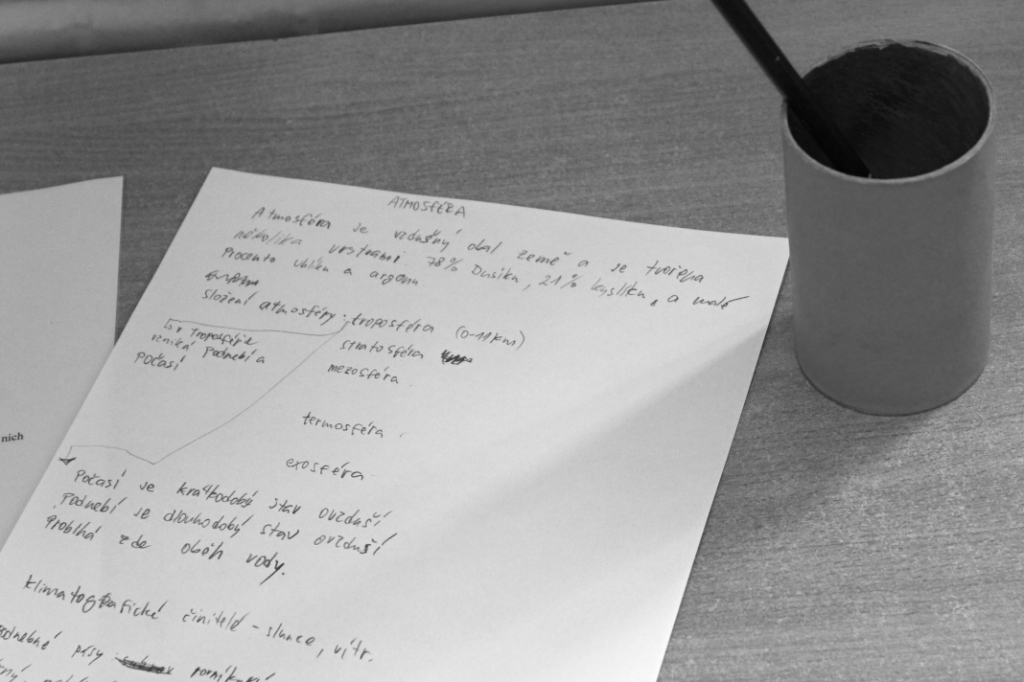 ATMOSFÉRA
Atmosféra je vzdušný obal země a je tvořena
několika vrstvami 78% Dusíku, 21% kyslíku, a malé
Procento uhlíku a argonu
složení atmosféry: troposféra (0-11km)
↳ v troposféře
vzniká podnebí a
POČASÍ
stratosféra
mezosféra
termosféra
exosféra
ních
Počasí je krátkodobý stav ovzduší
Podnebí je dlouhodobý stav ovzduší
Probíhá zde oběh vody.
Klimatografické činitelé - slunce, vítr.
podnebné pásy